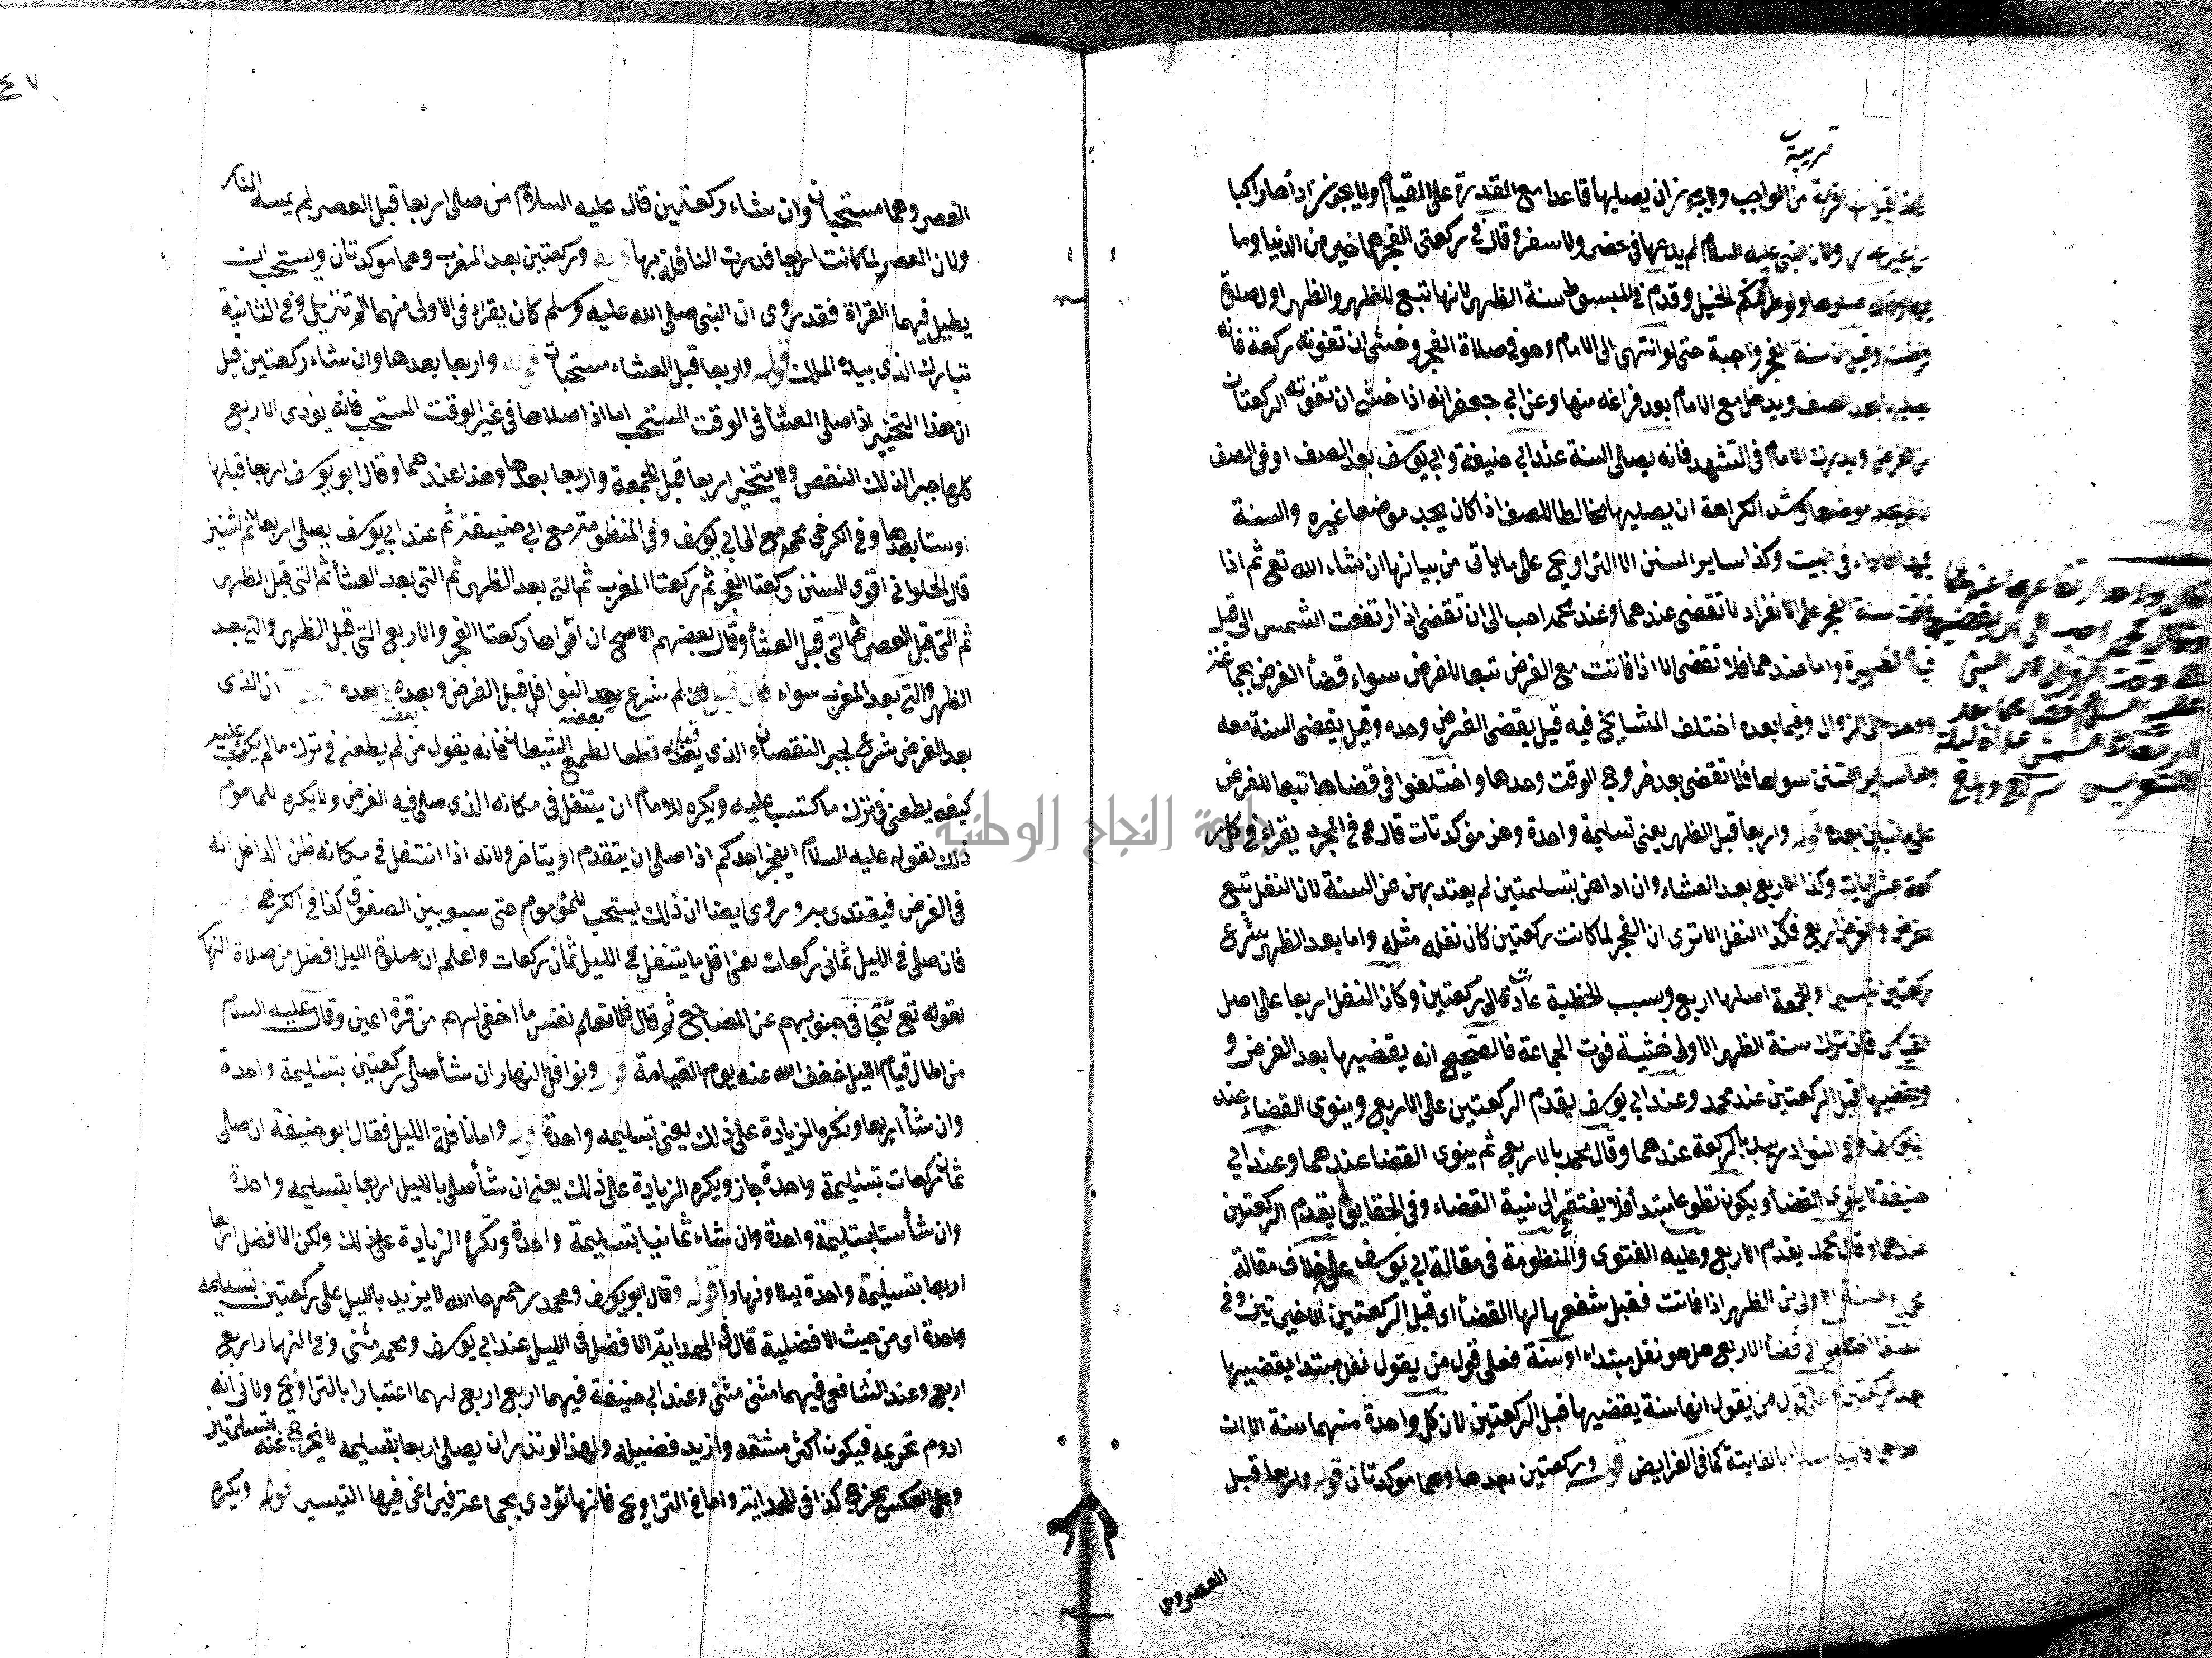 قريبة
قريبة من الواجب ولا يجوز ان يصليها قاعدا مع القدرة على القيام ولا يجوز اداها راكبا
من غير عذر ولان النبي عليه السلام لم يدعها في حضر ولا سفر وقال في ركعتي الفجر هما خير من الدنيا وما
فيها وقال صلوها ولو طردتكم الخيل وقدم في المبسوط سنة الظهر لانها تبع للظهر والظهر اول صلاة
فرضت وقيل ان سنة الفجر واجبة حتى لو انتهى الى الامام وهو في صلاة الفجر وخشي ان تفوته ركعة فانه
يصليها بعد الصف ويدخل مع الامام بعد فراغه منها وعن ابي جعفر انه اذا خشي ان تفوته الركعتان
من الفرض ويدرك الامام في التشهد فانه يصلي السنة عند ابي حنيفة وابي يوسف بعد الصف او في الصف
ان لم يجد موضعا واشد الكراهة ان يصليها مخالطا للصف اذا كان يجد موضعا غيره والسنة
فيها الاداء في البيت وكذا ساير السنن الا التراويح على ما ياتي من بيانها ان شاء الله تع ثم اذا
فاتت سنة الفجر على الانفراد لا تقضى عندهما وعند محمد احب الى ان تقضى اذ ارتفعت الشمس الى قبل
قيام الظهيرة واما عندهما فلا تقضى الا اذا فاتت مع الفرض تبعا للفرض سواء قضا الفرض بجماعة
او وحده الى الزوال وفيما بعده اختلف المشايخ فيه قيل يقضى الفرض وحده وقيل يقضى السنة معه
واما ساير السنن سواها فلا تقضى بعد خروج الوقت وحدها واختلفوا في قضاها تبعا للفرض
على ما تبين بعد قوله واربعا قبل الظهر يعني تسليمة واحدة وهن مؤكدات قال في المجرد يقراء في كل
ركعة عشر ايات وكذا الاربع بعد العشاء وان اداهن بتسليمتين لم يعتد بهن عن السنة لان النفل تبع
للفرض والفرض اربع فكذا النفل الا ترى ان الفجر لما كانت ركعتين كان نفله مثله واما بعد الظهر شرع
ركعتين تيسيرا والجمعة اصلها اربع وبسبب الخطبة عادت الى ركعتين وكان النفل اربعا على اصل
القياس فان ترك سنة الظهر الاولى خشية فوت الجماعة فالصحيح انه يقضيها بعد الفرض و
ويقضيها قبل الركعتين عند محمد وعند ابي يوسف يقدم الركعتين على الاربع وينوي القضاء عند
ابي يوسف وفي النوادر يبدا بالركعة عندهما وقال محمد بالاربع ثم ينوي القضا عندهما وعند ابي
حنيفة لا ينوي القضا ويكون تطوعا مبتدأ فلا يفتقر الى نية القضاء وفي الحقايق يقدم الركعتين
عندهما وقال محمد يقدم الاربع وعليه الفتوى والمنظومة في مقالة ابي يوسف على خلاف مقالة
محمد والسنة الاولى من الظهر اذا فاتت فقبل شفعها لها القضا اي قبل الركعتين الاخيرتين وفي
المصفا اختلفوا في قضا الاربع هل هو نفل مبتداء او سنة فعلى قول من يقول نفل مبتدا يقضيها
بعد الركعتين وعلى قول من يقول انها سنة يقضيها قبل الركعتين لان كل واحدة منهما سنة الا ان
احداهما فائتة بالفايتة كما في الفرايض قوله وركعتين بعدها وهما مؤكدتان قوله واربعا قبل
العصر وهما
وقال محمد احب الى ان يقضيها
الى وقت الزوال لان النبي
عليه السلام قضاهما بعد
ارتفاع الشمس غداة ليلة
التعريس
٤٧
العصر وهما مستحبان وان شاء ركعتين قال عليه السلام من صلى اربعا قبل العصر لم يمسه النار
ولان العصر لما كانت اربعا قدرت النافلة بها قوله وركعتين بعد المغرب وهما موكدتان ويستحب ان
يطيل فيهما القراة فقد روى ان النبي صلى الله عليه وسلم كان يقراء في الاولى منهما الم تنزيل وفي الثانية
تبارك الذي بيده الملك قوله واربعا قبل العشاء مستحبات قوله واربعا بعدها وان شاء ركعتين قيل
ان هذا التخير اذا صلى العشا في الوقت المستحب اما اذا صلاها في غير الوقت المستحب فانه يؤدى الاربع
كلها جبرا لذلك النقص ولا يتخير اربعا قبل الجمعة واربعا بعدها وهذا عندهما وقال ابو يوسف اربعا قبلها
وستا بعدها وفي الكرخي محمد مع ابي يوسف وفي المنظومة مع ابي حنيفة ثم عند ابي يوسف يصلي اربعا ثم اثنين
قال الحلواني اقوى السنن ركعتا الفجر ثم ركعتا المغرب ثم التي بعد الظهر ثم التي بعد العشا ثم التي قبل الظهر
ثم التي قبل العصر ثم التي قبل العشا وقال بعضهم الاصح ان اقواها ركعتا الفجر والاربع التي قبل الظهر والتي بعد
الظهر والتي بعد المغرب سواء فان قيل لم شرع بعض النوافل قبل الفرض وبعضها بعده ان الذي
بعد الفرض شرع لجبر النقصان والذي قبله قطعا لطمع الشيطان فانه يقول من لم يطعني في ترك ما لم يكتب عليه
كيف يطعني في ترك ما كتب عليه ويكره للامام ان يتنفل في مكانه الذي صلى فيه الفرض ولا يكره للماموم
ذلك لقوله عليه السلام ايعجز احدكم اذا صلى ان يتقدم او يتاخر ولانه اذا انتفل في مكانه ظن الداخل انه
في الفرض فيقتدى به وروى ايضا ان ذلك يستحب للمؤموم حتى بين الصفوف كذا في الكرخي
فان صلى في الليل ثماني ركعات يعني اقل ما يتنفل في الليل ثمان ركعات واعلم ان صلوة الليل افضل من صلاة النهار
بقوله تع تتجافى جنوبهم عن المضاجع ثم قال فلا تعلم نفس ما اخفي لهم من قرة اعين وقال عليه السلام
من اطال قيام الليل خفف الله عنه يوم القيامة قوله ونوافل النهار ان شا صلى ركعتين بتسليمة واحدة
وان شا اربعا وتكره الزيادة على ذلك يعني تسليمه واحدة قوله واما نافلة الليل فقال ابو حنيفة ان صلى
ثمان ركعات بتسليمة واحدة جاز ويكره الزيادة على ذلك يعني ان شا صلى بالليل اربعا بتسليمه واحدة
وان شا ستا بتسليمة واحدة وان شاء ثمانيا بتسليمة واحدة وتكره الزيادة على ذلك ولكن الافضل اربعا
اربعا بتسليمة واحدة ليلا ونهارا قوله وقال ابو يوسف ومحمد رحمهما الله لا يزيد بالليل على ركعتين بتسليمه
واحدة اي من حيث الافضلية قال في الهداية الافضل في الليل عند ابي يوسف ومحمد مثنى وفي النهار اربع
اربع وعند الشافعي فيهما مثنى مثنى وعند ابي حنيفة فيهما اربع اربع لهما اعتبارا بالتراويح ولابي انه
ادوم تحريمه فيكون اكثر مشقه وازيد فضيله ولهذا لو نذر ان يصلي اربعا بتسليمه لا يخرج عنه بتسليمتين
وعلى العكس يخرج كذا في الهداية واما في التراويح فانها تؤدى بجماعة فيراعى فيها التيسير قوله ويكره
جامعة النجاح الوطنية